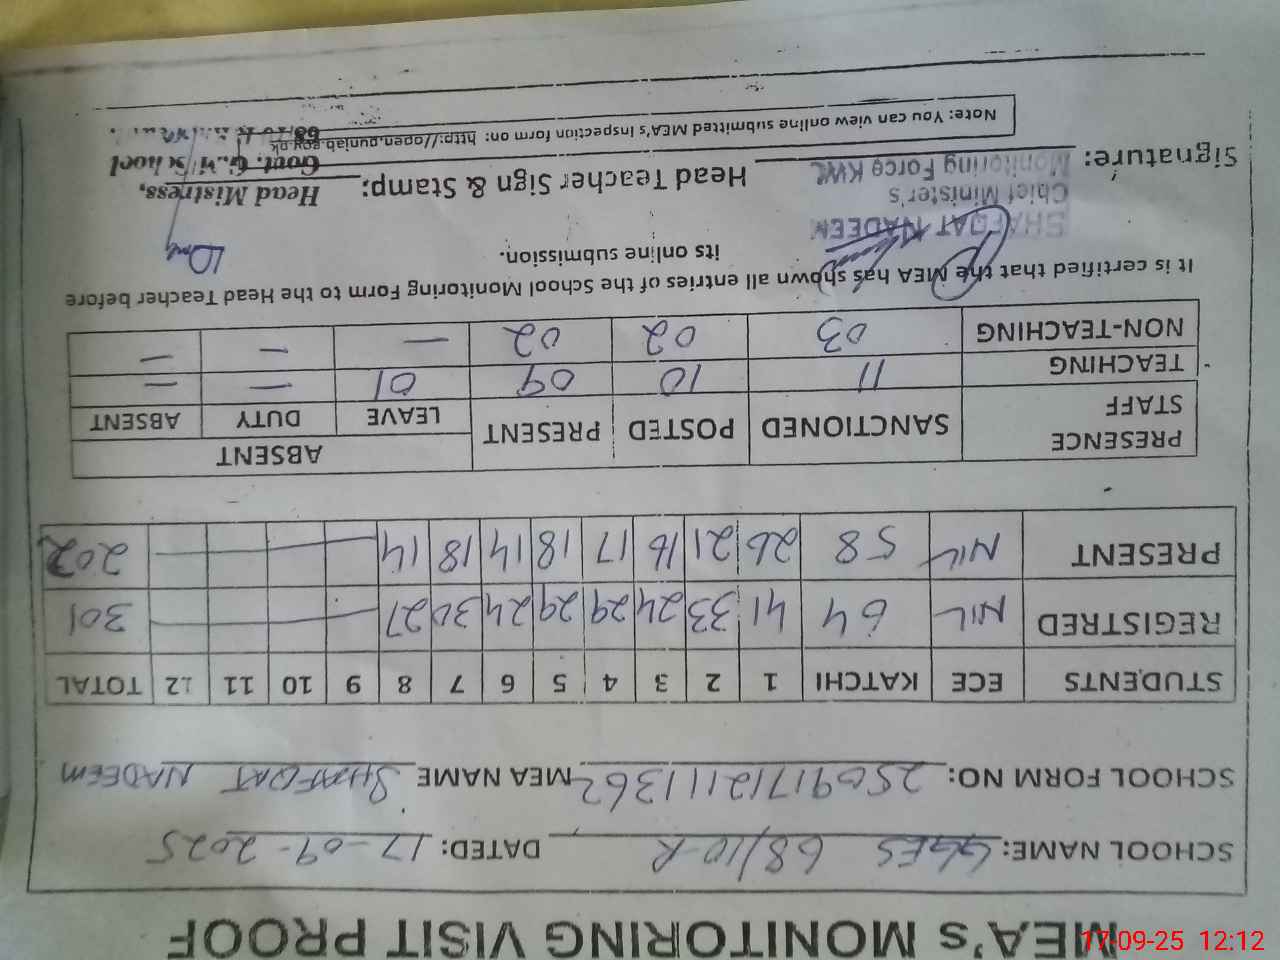 MEA's MONITORING VISIT PROOF
SCHOOL NAME: GGES 68/10-R DATED: 17-09-2025
SCHOOL FORM NO: 25091712111362 MEA NAME SHAFQAT NADEEM
STUDENTS ECE KATCHI 1 2 3 4 5 6 7 8 9 10 11 12 TOTAL
REGISTRED NIL 64 41 33 24 29 29 24 30 27 — — — — 301
PRESENT NIL 58 26 21 16 17 18 14 18 14 — — — — 202
PRESENCE STAFF SANCTIONED POSTED PRESENT ABSENT
LEAVE DUTY ABSENT
TEACHING 11 10 09 01 — —
NON-TEACHING 03 02 02 — — —
It is certified that the MEA has shown all entries of the School Monitoring Form to the Head Teacher before
its online submission.
SHAFQAT NADEEM
Chief Minister's
Monitoring Force KWL
Signature: Head Teacher Sign & Stamp:
Head Mistress,
Govt. G. School
Note: You can view online submitted MEA's Inspection form on: http://open.punjab.gov.pk
17-09-25 12:12